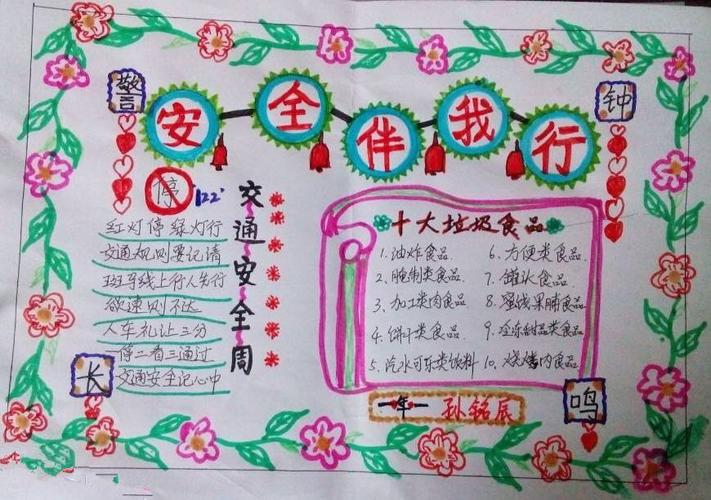 警
钟
安全伴我行
停
122
红灯停绿灯行
交通规则要记请
斑马线上行人先行
欲速则不达
人车礼让三分
停二看三通过
交通安全记心中
交通安全周
十大垃圾食品
1.油炸食品
2.腌制类食品
3.加工类肉食品
4.饼干类食品
5.汽水可乐类饮料
6.方便类食品
7.罐头食品
8.蜜饯果脯食品
9.冷冻甜品类食品
10.烧烤肉食品
长
鸣
一年一 孙铭辰